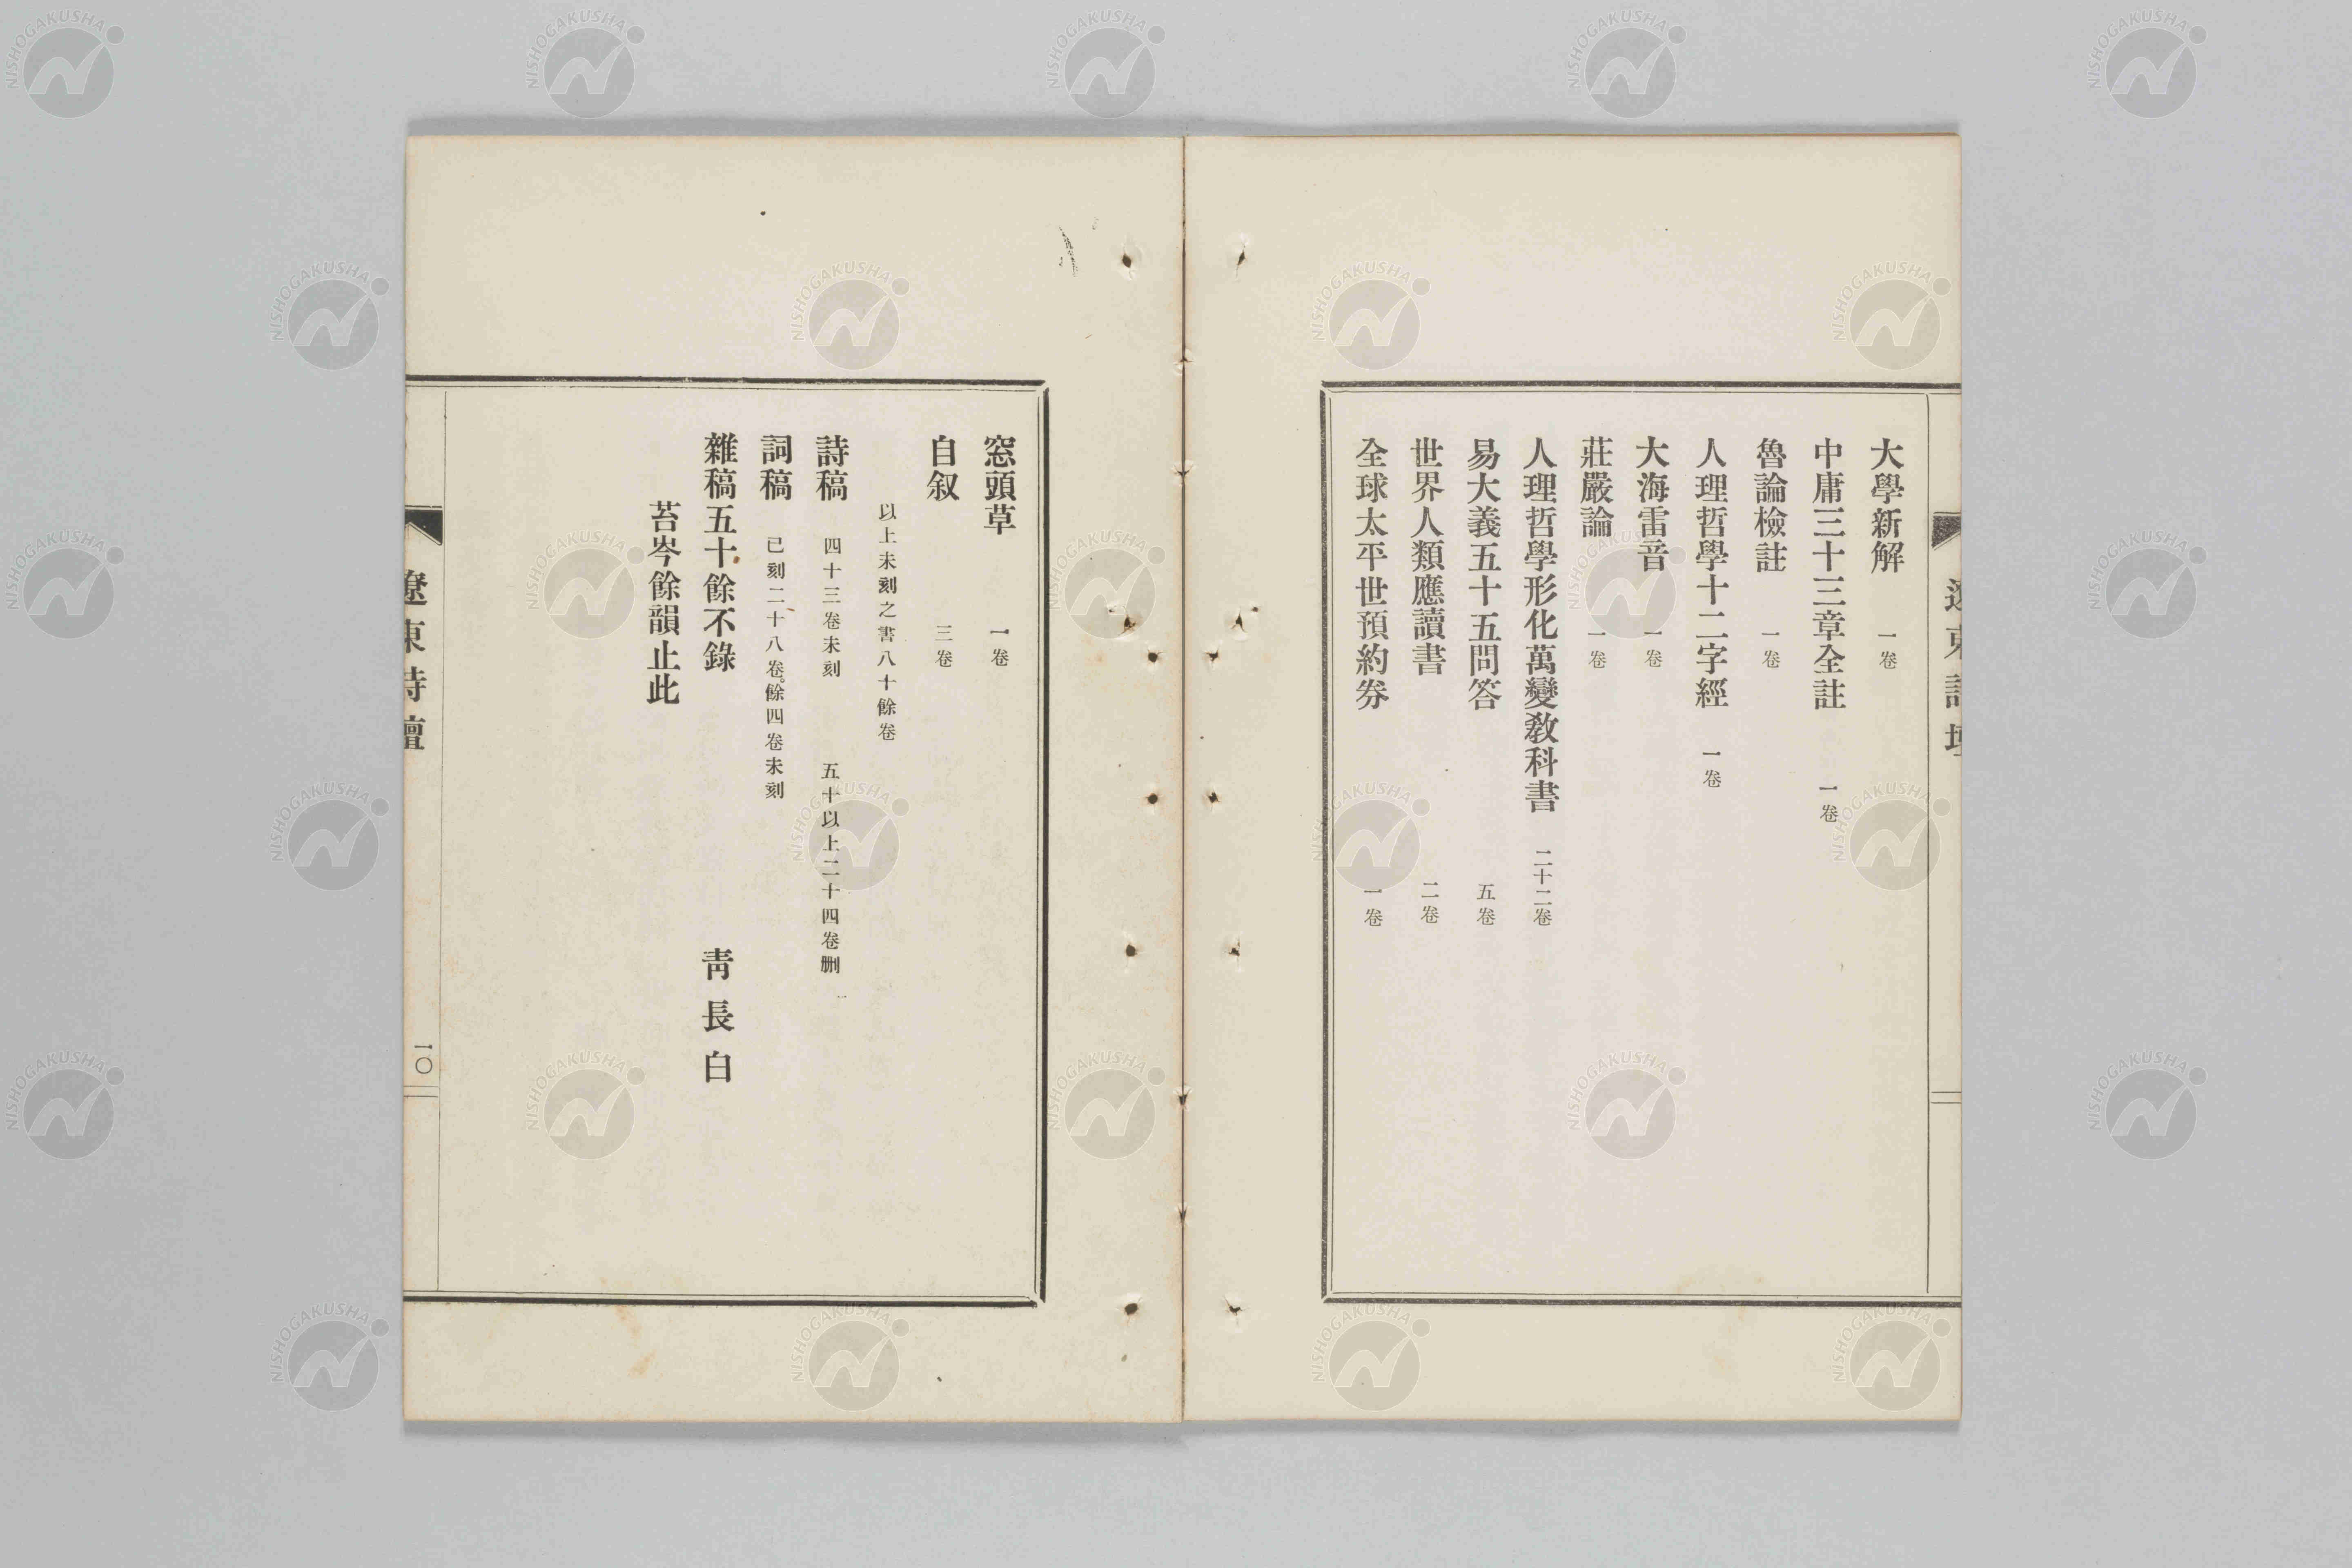 大學新解　一卷
中庸三十三章全註　一卷
魯論檢註　一卷
人理哲學十二字經　一卷
大海雷音　一卷
莊嚴論　一卷
人理哲學形化萬變教科書　二十二卷
易大義五十五問答　五卷
世界人類應讀書　二卷
全球太平世預約券　一卷
窓頭草　一卷
自叙　三卷
以上未刻之書八十餘卷
詩稿　四十三卷未刻　五十以上二十四卷删
詞稿　已刻二十八卷。餘四卷未刻
雜稿五十餘不錄　靑長白
苔岑餘韻止此
遼東詩壇
一〇
NISHOGAKUSHA